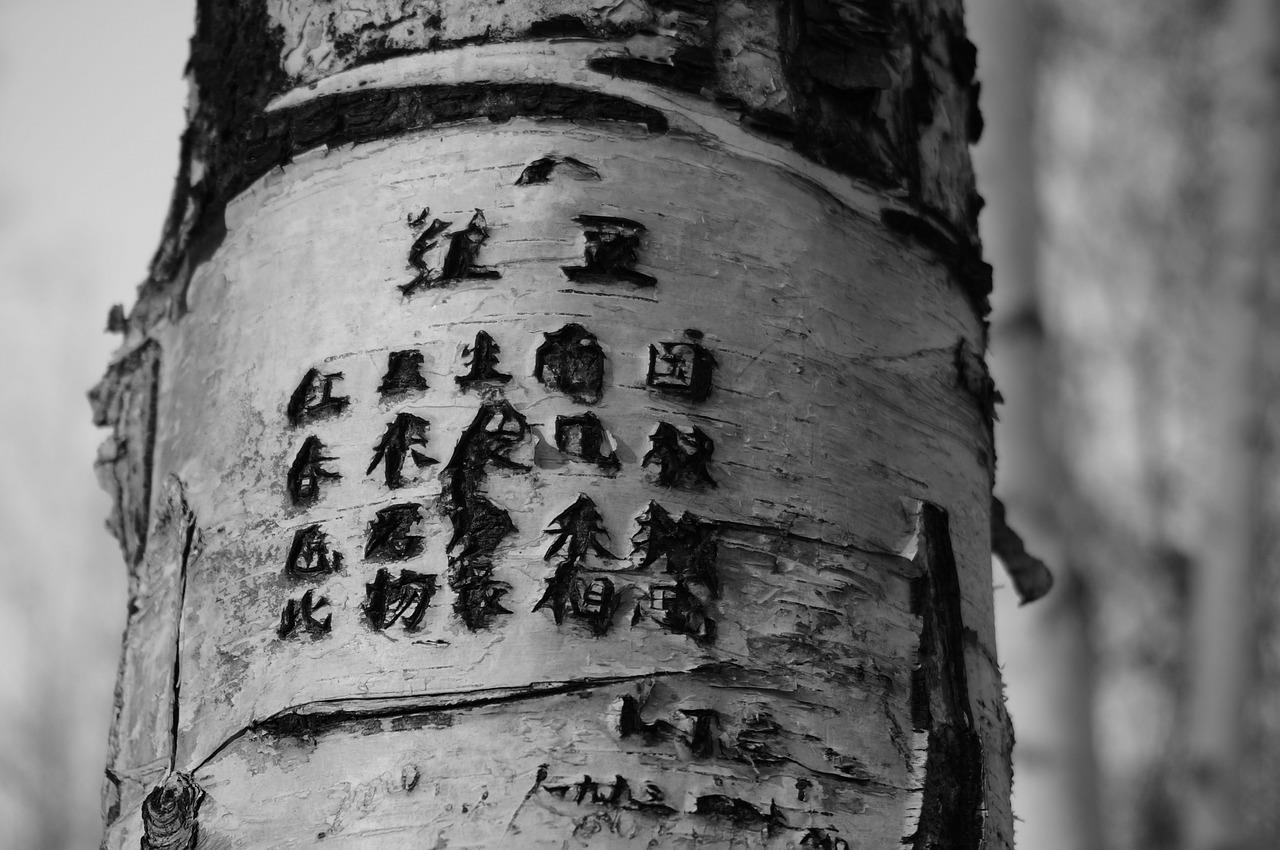 红豆
红豆生南国
春来发几枝
愿君多采撷
此物最相思